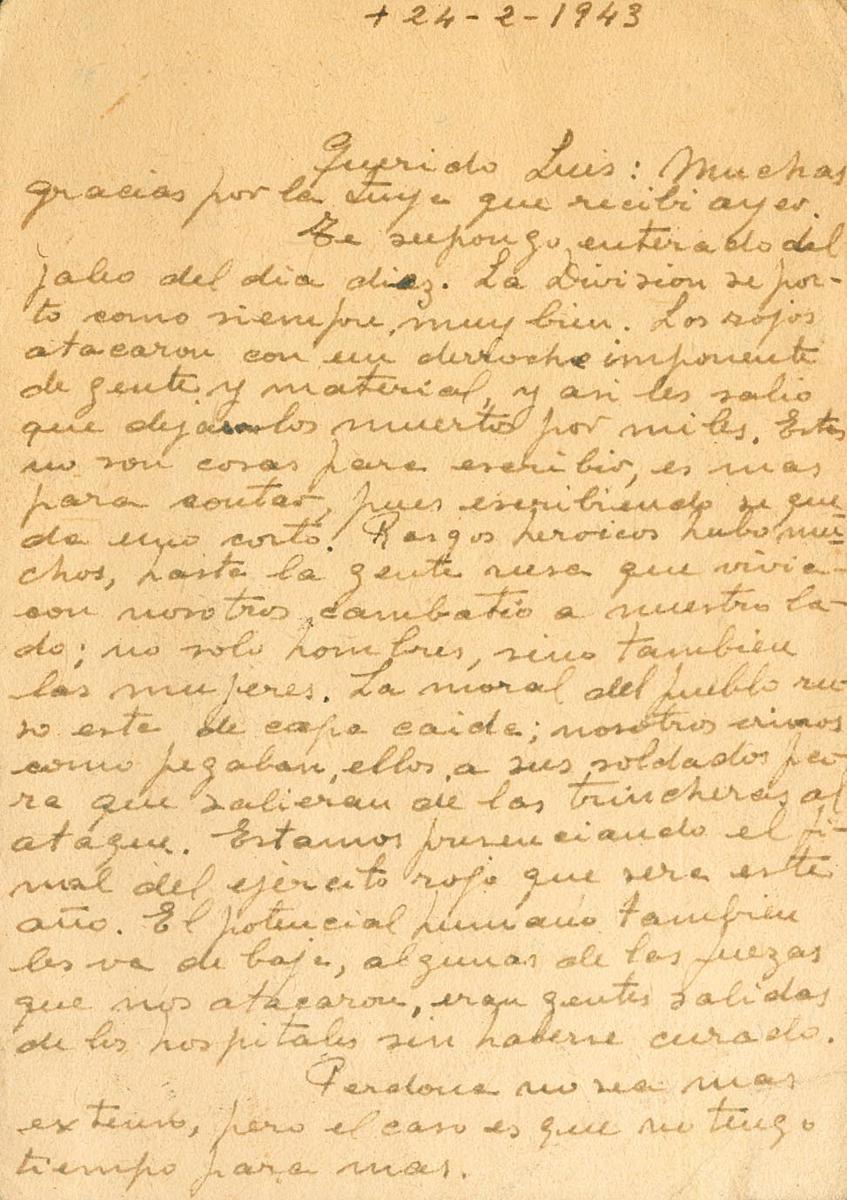 + 24-2-1943
Querido Luis: Muchas
gracias por la tuya que recibi ayer.
Te supongo enterado del
jaleo del dia diez. La Division se por-
to como siempre, muy bien. Los rojos
atacaron con un derroche imponente
de gente y material, y asi les salio
que dejarlos muertos por miles. Estas
no son cosas para escribir, es mas
para contar, pues escribiendo se que
da uno corto. Rasgos heroicos hubo mu-
chos, hasta la gente rusa que vivia
con nosotros combatio a nuestro la-
do; no solo hombres, sino tambien
las mujeres. La moral del pueblo ru
so esta de capa caida; nosotros vimos
como pegaban, ellos, a sus soldados pa-
ra que salieran de las trincheras al
ataque. Estamos presenciando el fi-
nal del ejército rojo que sera este
año. El potencial humano tambien
les va de baja, algunas de las fuezas
que nos atacaron, eran gentes salidas
de los hospitales sin haberse curado.
Perdona no sea mas
extenso, pero el caso es que no tengo
tiempo para mas.